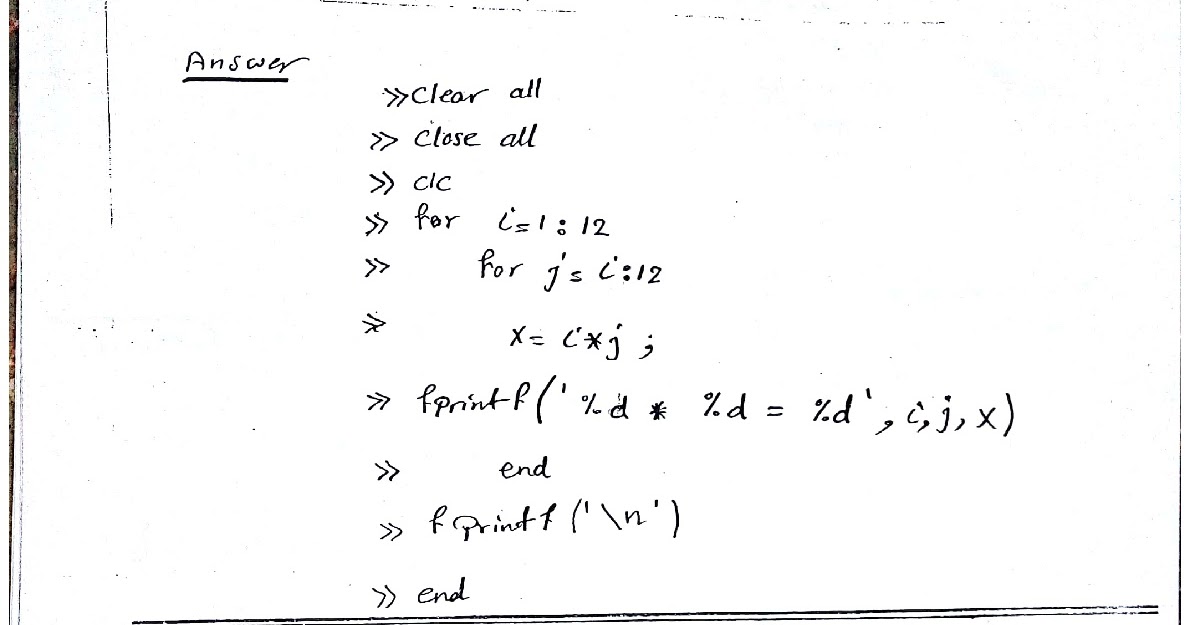 Answer
>> Clear all
>> Close all
>> clc
>> for i=1:12
>> for j=i:12
>> x= i*j ;
>> fprintf('%d * %d = %d', i, j, x)
>> end
>> fprintf('\n')
>> end